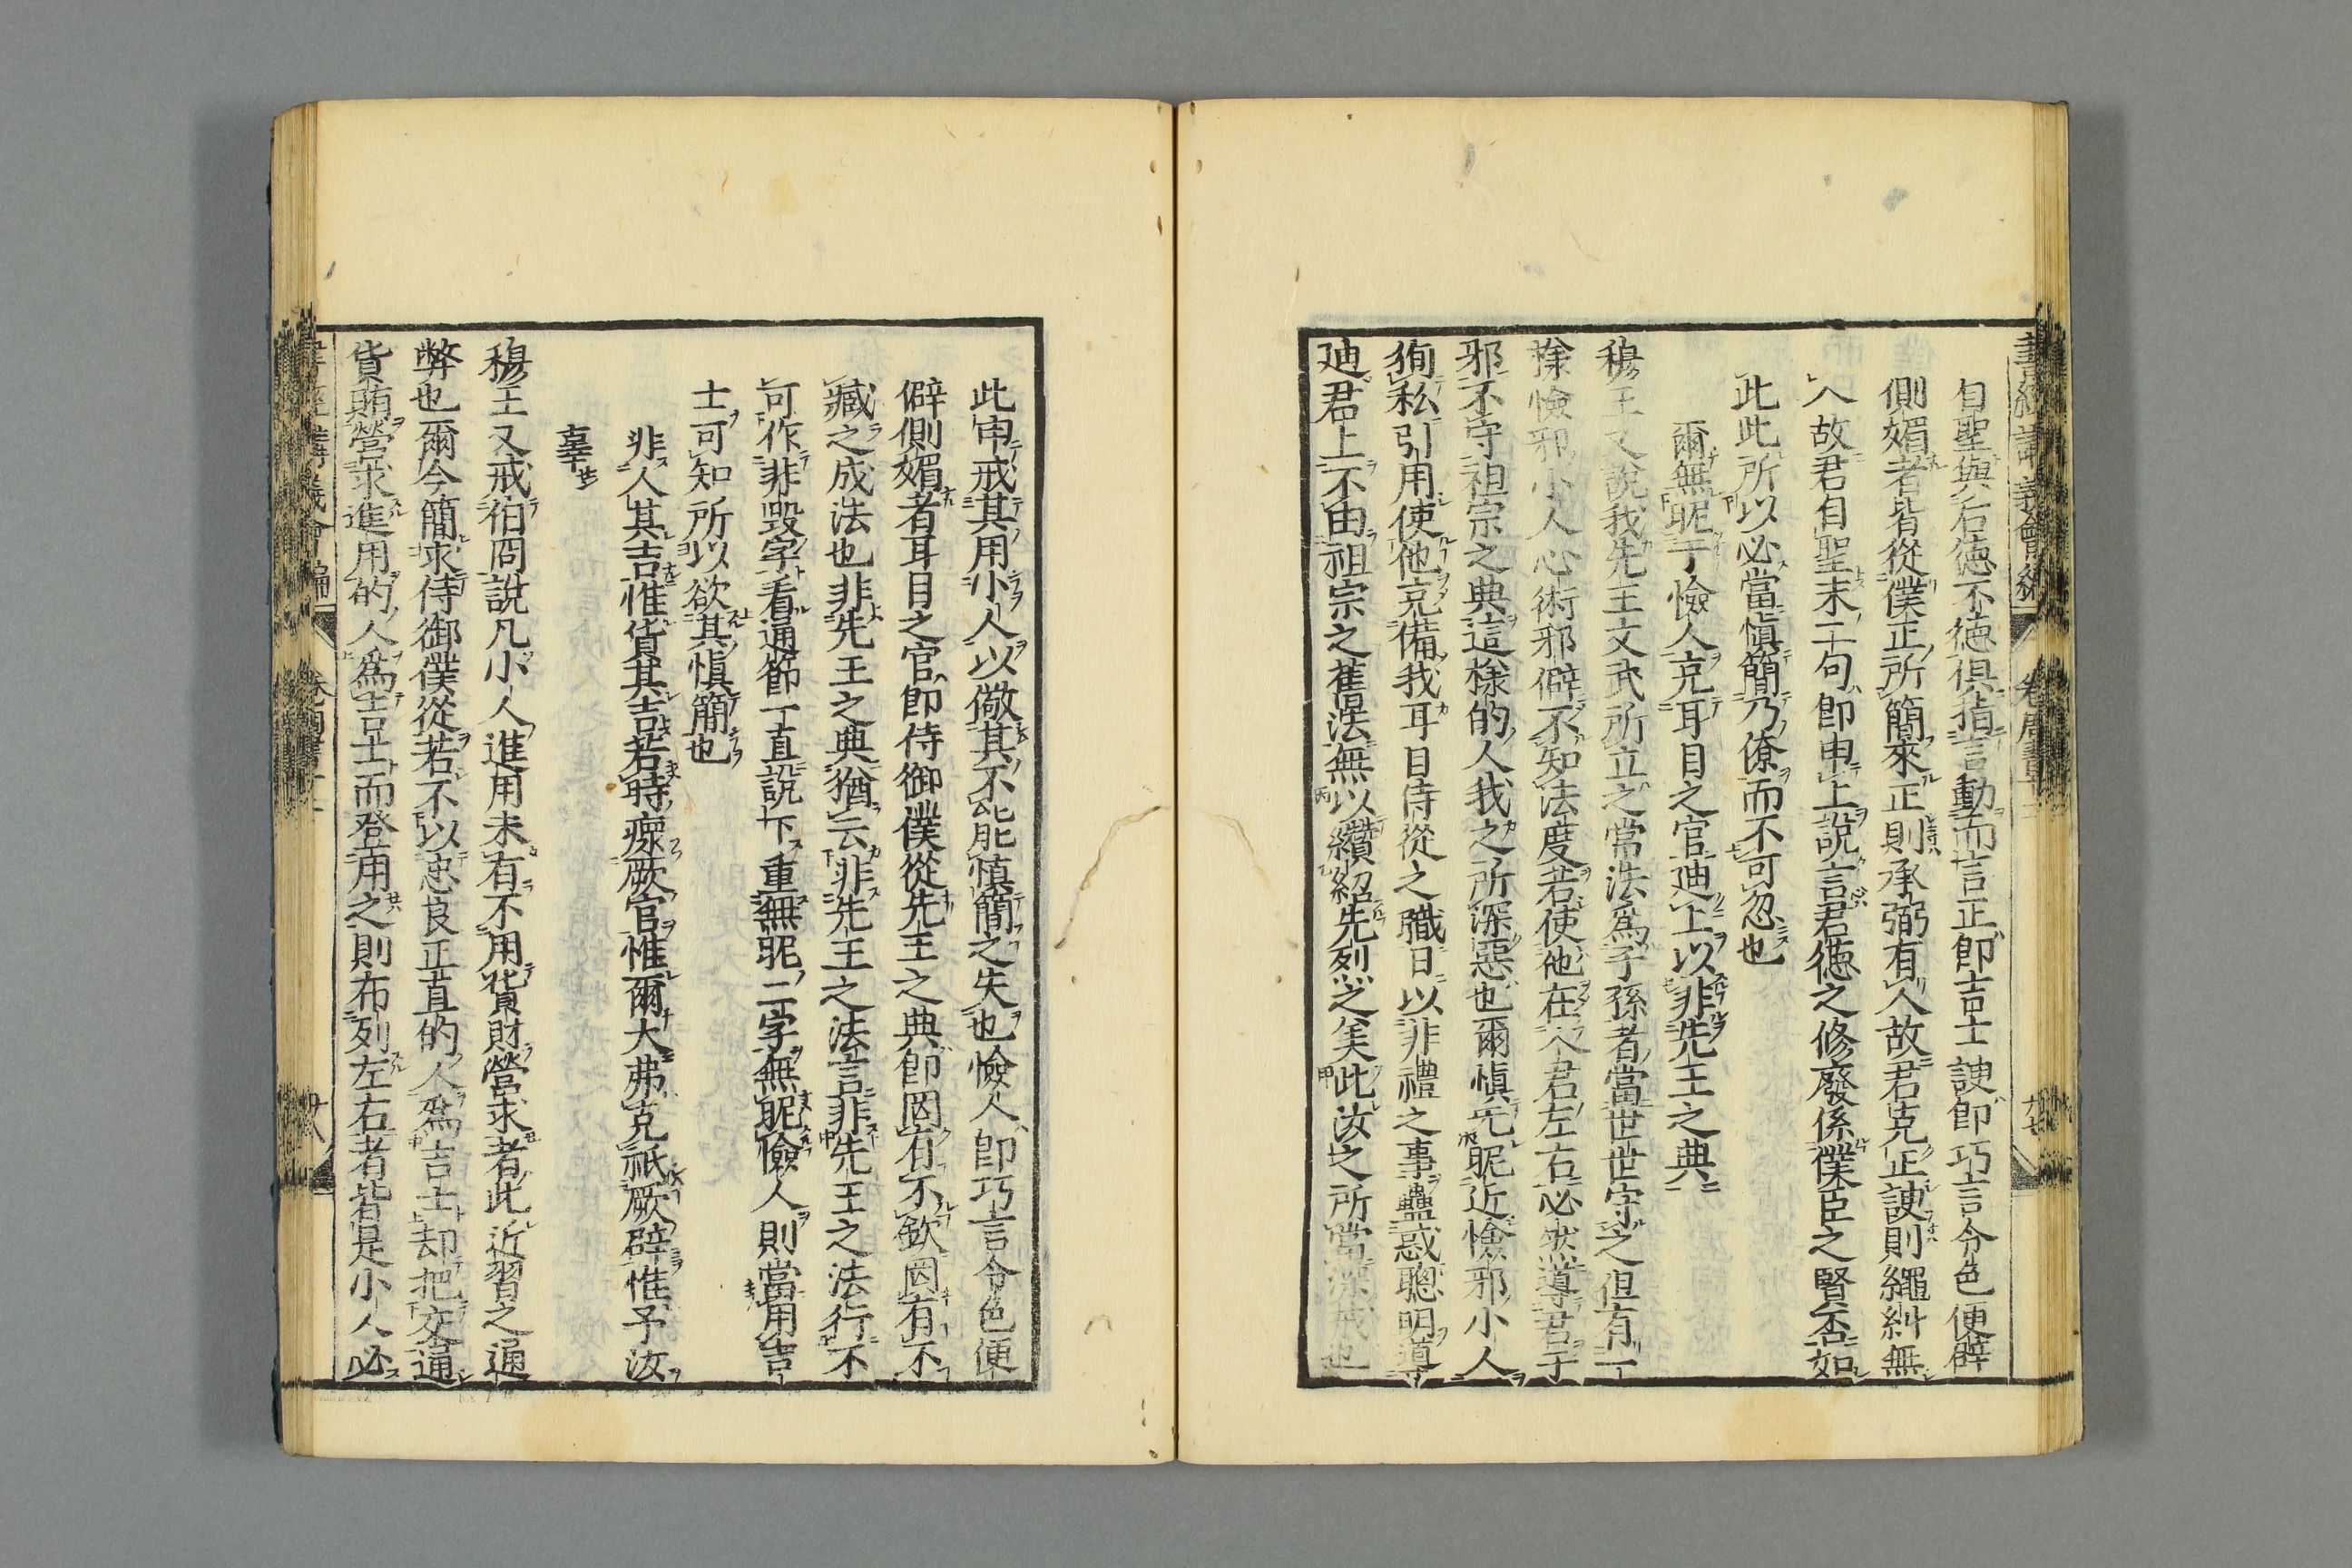 自聖與后德不德俱指言動而言正即吉士諛即巧言令色便辟
側媚者皆從僕正所簡來正則承弼有人故君克正諛則繩糾無
人故君自聖末二句即申上說言君德之修廢係僕臣之賢否如
此此所以必當慎簡乃僚而不可忽也
爾無昵于憸人充耳目之官迪上以非先王之典
穆王又說我先王文武所立之常法為子孫者當世世守之但有一
憸邪小人心術邪僻不知法度若使他在人君左右必然導君于
邪不守祖宗之典這樣的人我之所深惡也爾慎无昵近憸邪小人
狥私引用使他充備我耳目侍從之職日以非禮之事蠱惑聰明導
迪君上不由祖宗之舊法無以纘紹先烈之美此汝之所當深戒也
此申戒其用小人以儆其不能慎簡之失也憸人即巧言令色便
僻側媚者耳目之官即侍御僕從先王之典即罔有不欽罔有不
臧之成法也非先王之典猶云非先王之法言非先王之法行不
可作非毀字看通節一直說下重無昵二字無昵憸人則當用吉
士可知所以欲其慎簡也
非人其吉惟貨其吉若時瘝厥官惟爾大弗克祇厥辟惟予汝
辜
穆王又戒伯冏說凡小人進用未有不用貨財營求者此近習之通
弊也爾今簡求侍御僕從若不以忠良正直的人為吉士却把交通
貨賄營求進用的人為吉士而登用之則布列左右者皆是小人必